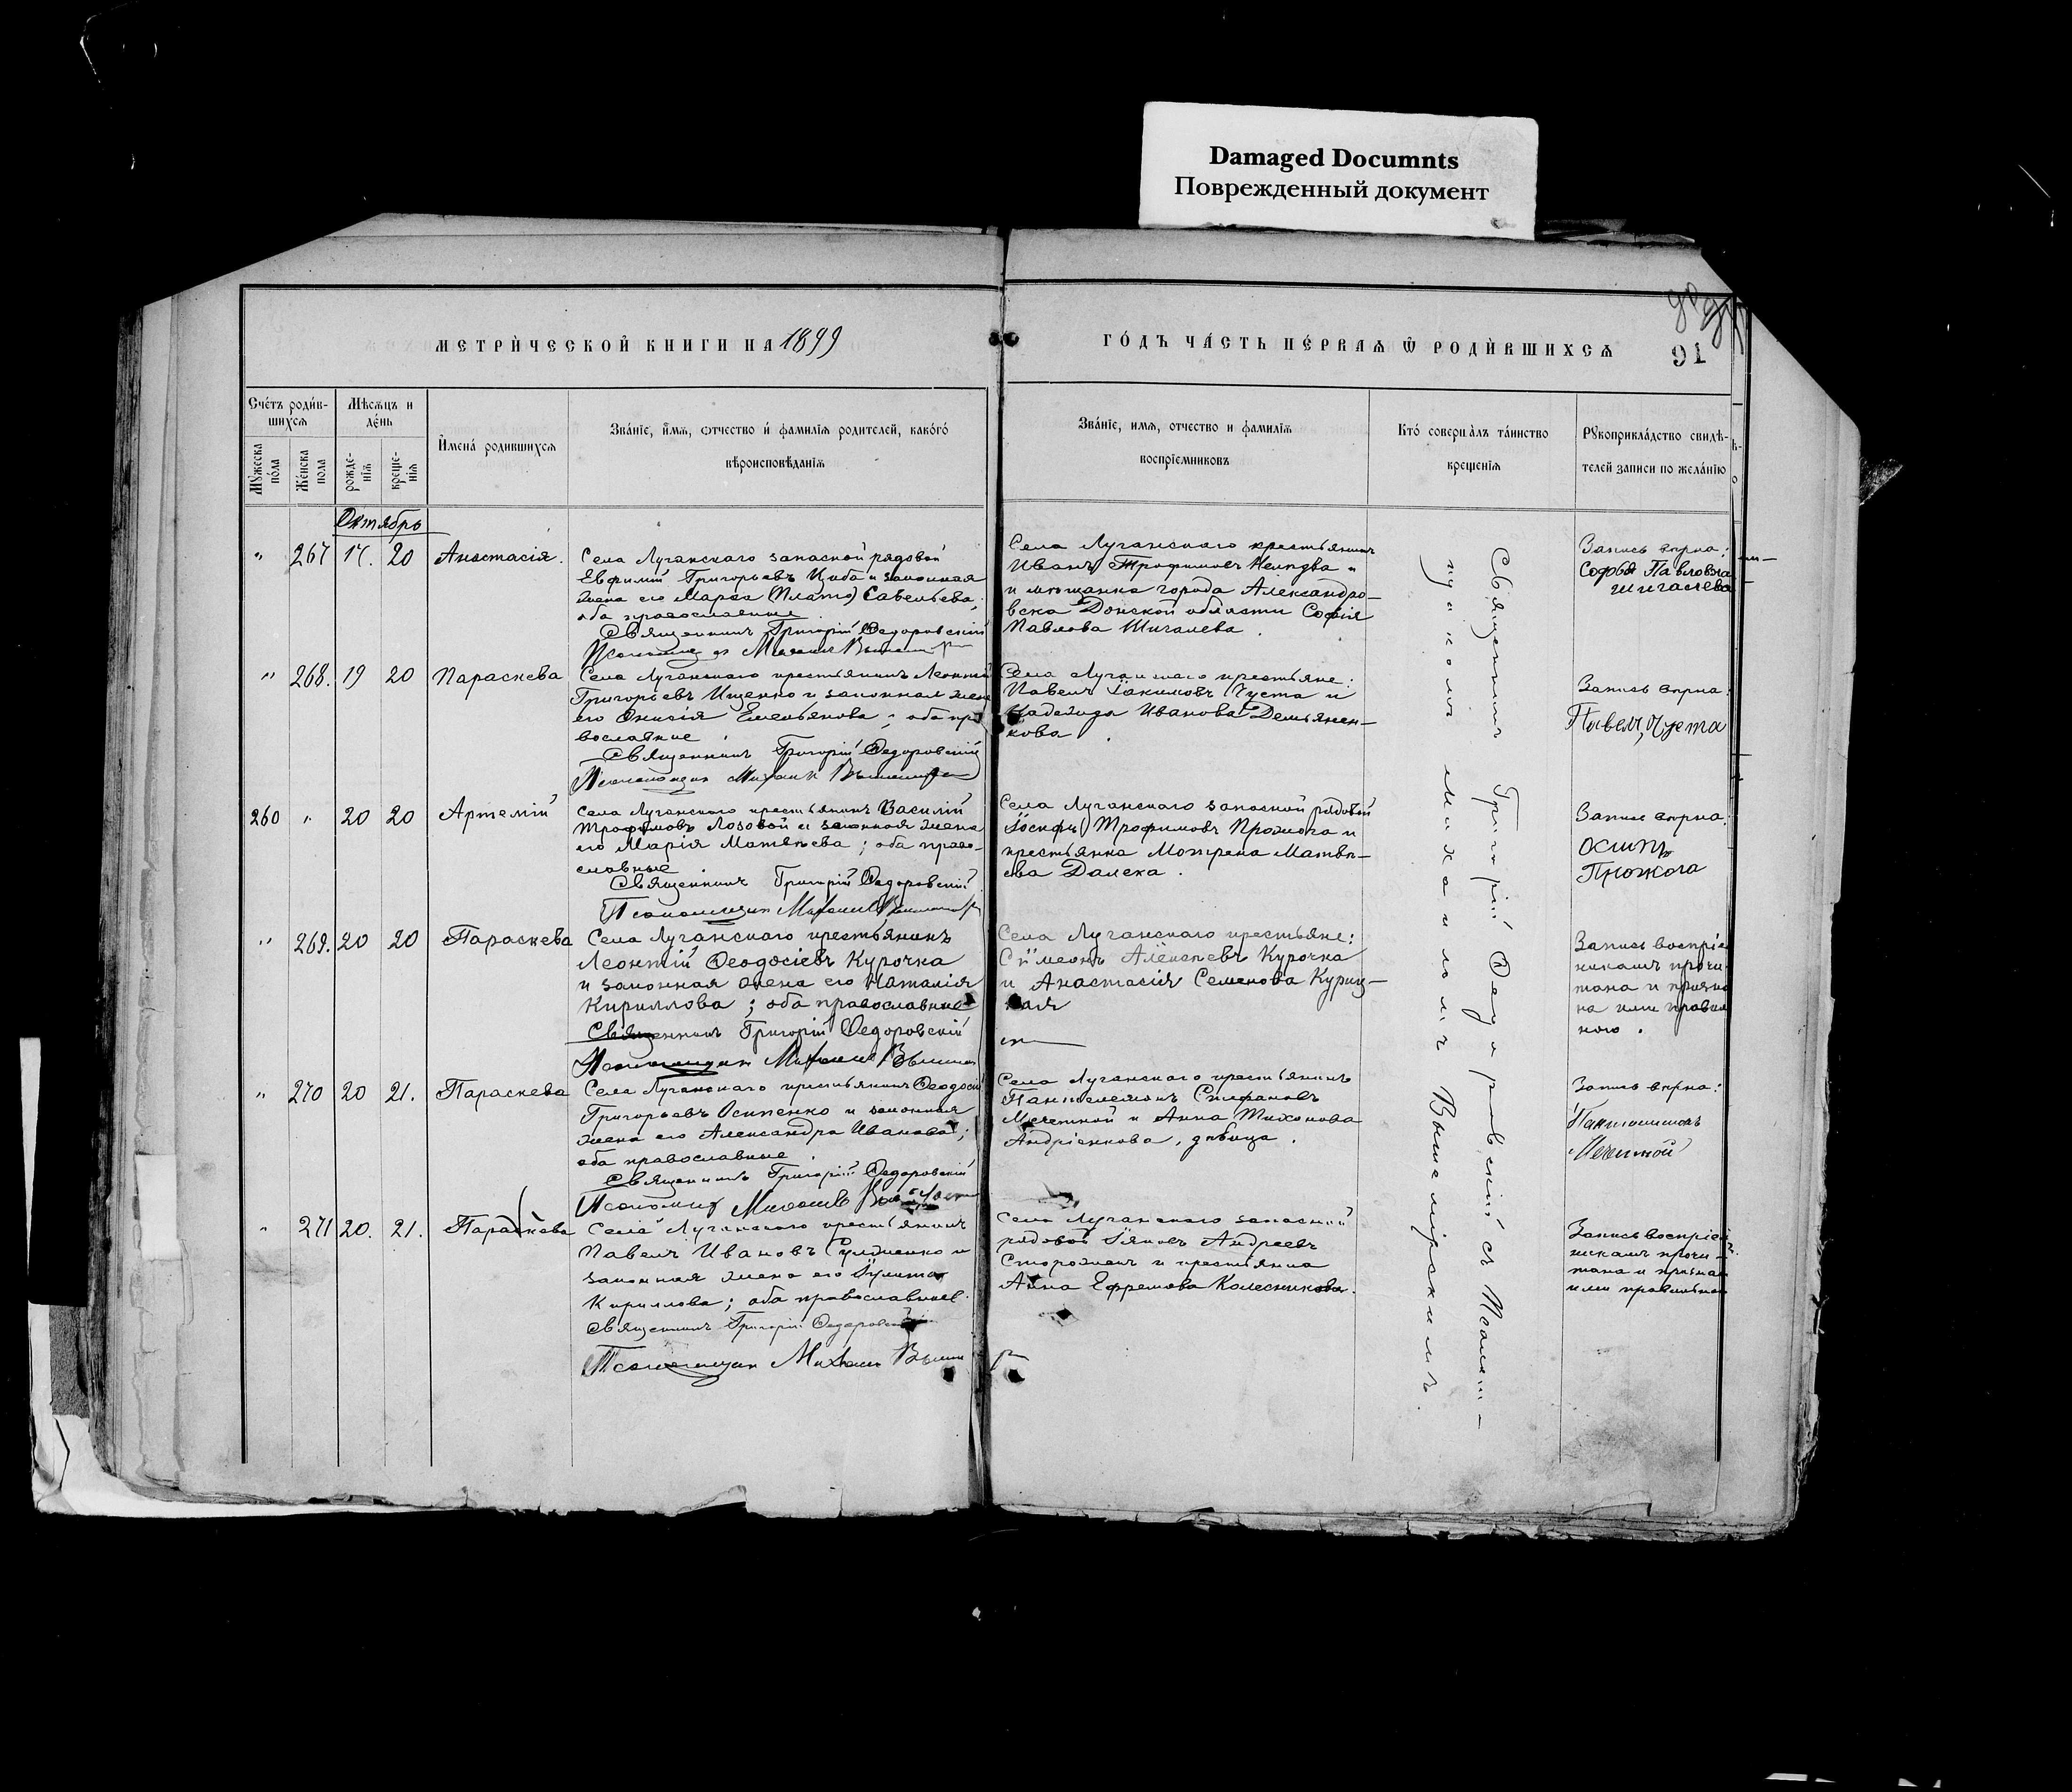 Damaged Documnts
Поврежденный документ
МЕТРИ́ЧЕСКОЙ КНИГИ НА 1899
ГО́ДЪ ЧА́СТЬ ПЕ́РВАѦ Ѿ РОДИ́ВШИХСѦ
91
Сче́тъ роди́в-
шихсѧ
Мѣсѧцъ и
де́нь
Мꙋжеска
по́ла
Же́нска
пола
рожде-
нїѧ
креще-
нїѧ
И҆мена́ родившихсѧ
Зва́нїе, и҆́мѧ, ѻтчество и҆ фамилїѧ родителей, како́гѡ
вѣроисповѣданїѧ
Зва́нїе, имѧ, отчество и фамилїѧ
воспрїемниковъ
Кто́ соверша́лъ та́инство
крещенїѧ
Рꙋкоприкла́дство свидѣ-
телей записи по жела́нїю
Октябрь
" 267 17. 20 Анастасія.
Села Луганскаго запасной рядовой
Евфимій Григорьевъ Цыба и законная
жена его Марѳа Савельева;
оба православные
Священникъ Григорій Ѳедоровскій
Села Луганскаго крестьянинъ
Иванъ Трофимовъ и
и мѣщанка города Александро-
вска Донской области Софія
Павлова Шигалева.
Запись вѣрна:
Софья Павловна
" 268. 19 20 Параскева
Села Луганскаго крестьянинъ Леонтій
Григорьевъ Ищенко и законная жена
его Емельянова; оба пра
вославные
Священникъ Григорій Ѳедоровскій
Псаломщикъ Михаилъ
Села Луганскаго крестьяне:
Павелъ Іакимовъ Чуета и
Надежда Иванова Демьянен-
кова.
Запись вѣрна:
Павелъ Чуета
260 " 20 20 Артемій
Села Луганскаго крестьянинъ Василій
Трофимовъ Лозовой и законная жена
его Марія Матвѣева; оба право-
славные.
Священникъ Григорій Ѳедоровскій
Псаломщикъ Михаилъ
Села Луганскаго запасной рядовой
Іосифъ Трофимовъ Прожога и
крестьянка Мотрена Матвѣ-
ева Далека.
Запись вѣрна:
осипъ
" 269. 20 20 Параскева
Села Луганскаго крестьянинъ
Леонтій Ѳеодосіевъ Курочка
и законная жена его Наталія
Кириллова; оба православные
Священникъ Григорій Ѳедоровскій
Псаломщикъ Михаилъ
Села Луганскаго крестьяне:
Сѵмеонъ Алексѣевъ Курочка
и Анастасія Семенова Куриц-
кая
Запись воспріе
никамъ прочи-
тана и призна
на ими правиль
ною.
" 270 20 21. Параскева
Села Луганскаго крестьянинъ Ѳеодосій
Григорьевъ Осипенко и законная
жена его Александра Иванова;
оба православные.
Священникъ Григорій Ѳедоровскій
Псаломщикъ Михаилъ
Села Луганскаго крестьянинъ
Пантелеимонъ Стефановъ
Мечетной и Анна Тихонова
Андріенкова, дѣвица.
Запись вѣрна:
Пантелеимонъ
" 271 20. 21. Параскева
Села Луганскаго крестьянинъ
Павелъ Ивановъ и
законная жена его Іулитта
Кириллова; оба православные.
Священникъ Григорій Ѳедоровскій
Псаломщикъ Михаилъ
Села Луганскаго запасной
рядовой Іаковъ Андреевъ
Сторожъ и крестьянка
Анна Ефремова Колесникова.
Запись воспріем
никамъ прочи-
тана и признан
ими правильною
Священникъ Григорій Ѳедоровскій съ Псалом-
щикомъ Михаиломъ Вышемірскимъ.